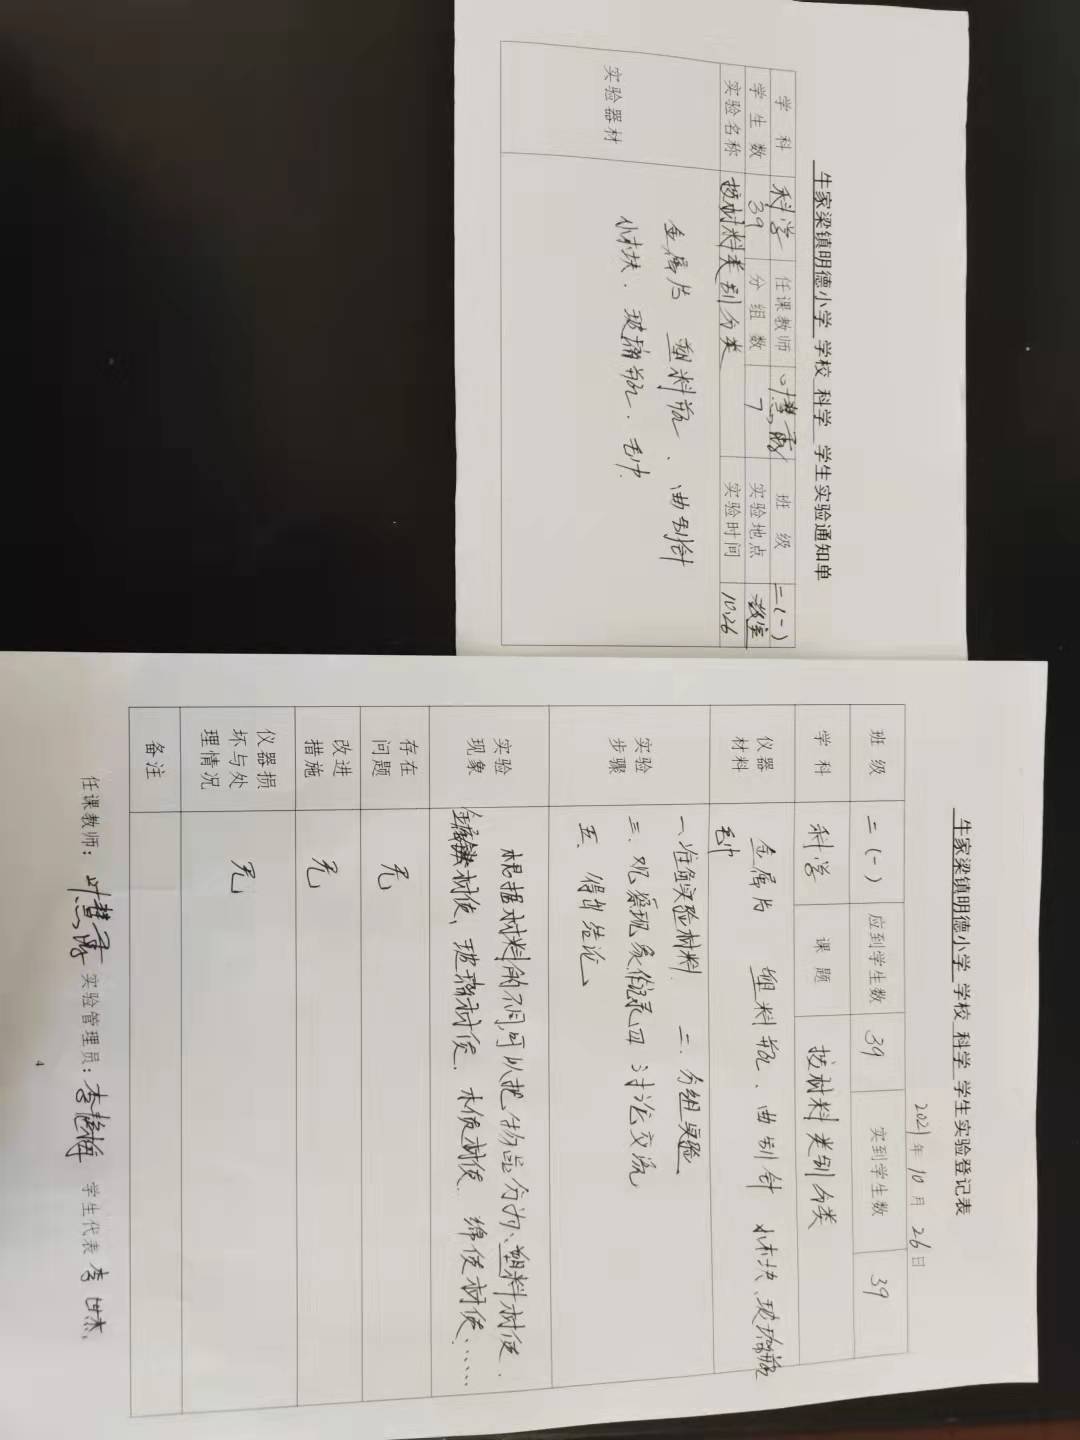 牛家梁镇明德小学 学校 科学 学生实验通知单
学科 科学 任课教师 叶慧 班级 二(一)
学生数 39 分组数 7 实验地点 教室
实验名称 按材料类别分类 实验时间 10.26
实验器材
金属片 塑料瓶、曲别针
小木块、玻璃瓶、毛巾
牛家梁镇明德小学 学校 科学 学生实验登记表
2021年10月26日
班级 二(一) 应到学生数 39 实到学生数 39
学科 科学 课题 按材料类别分类
仪器材料
金属片 塑料瓶、曲别针 小木块、玻璃瓶
毛巾
实验步骤
一、准备实验材料 二、分组实验
三、观察现象做记录四 讨论交流
五、得出结论
实验现象
根据材料的不同,可以把物品分为:塑料材质、
金属材质、玻璃材质、木质材质、绵质材质……
存在问题 无
改进措施 无
仪器损坏与处理情况 无
备注
任课教师: 叶慧 实验管理员: 李 学生代表 李世杰
4